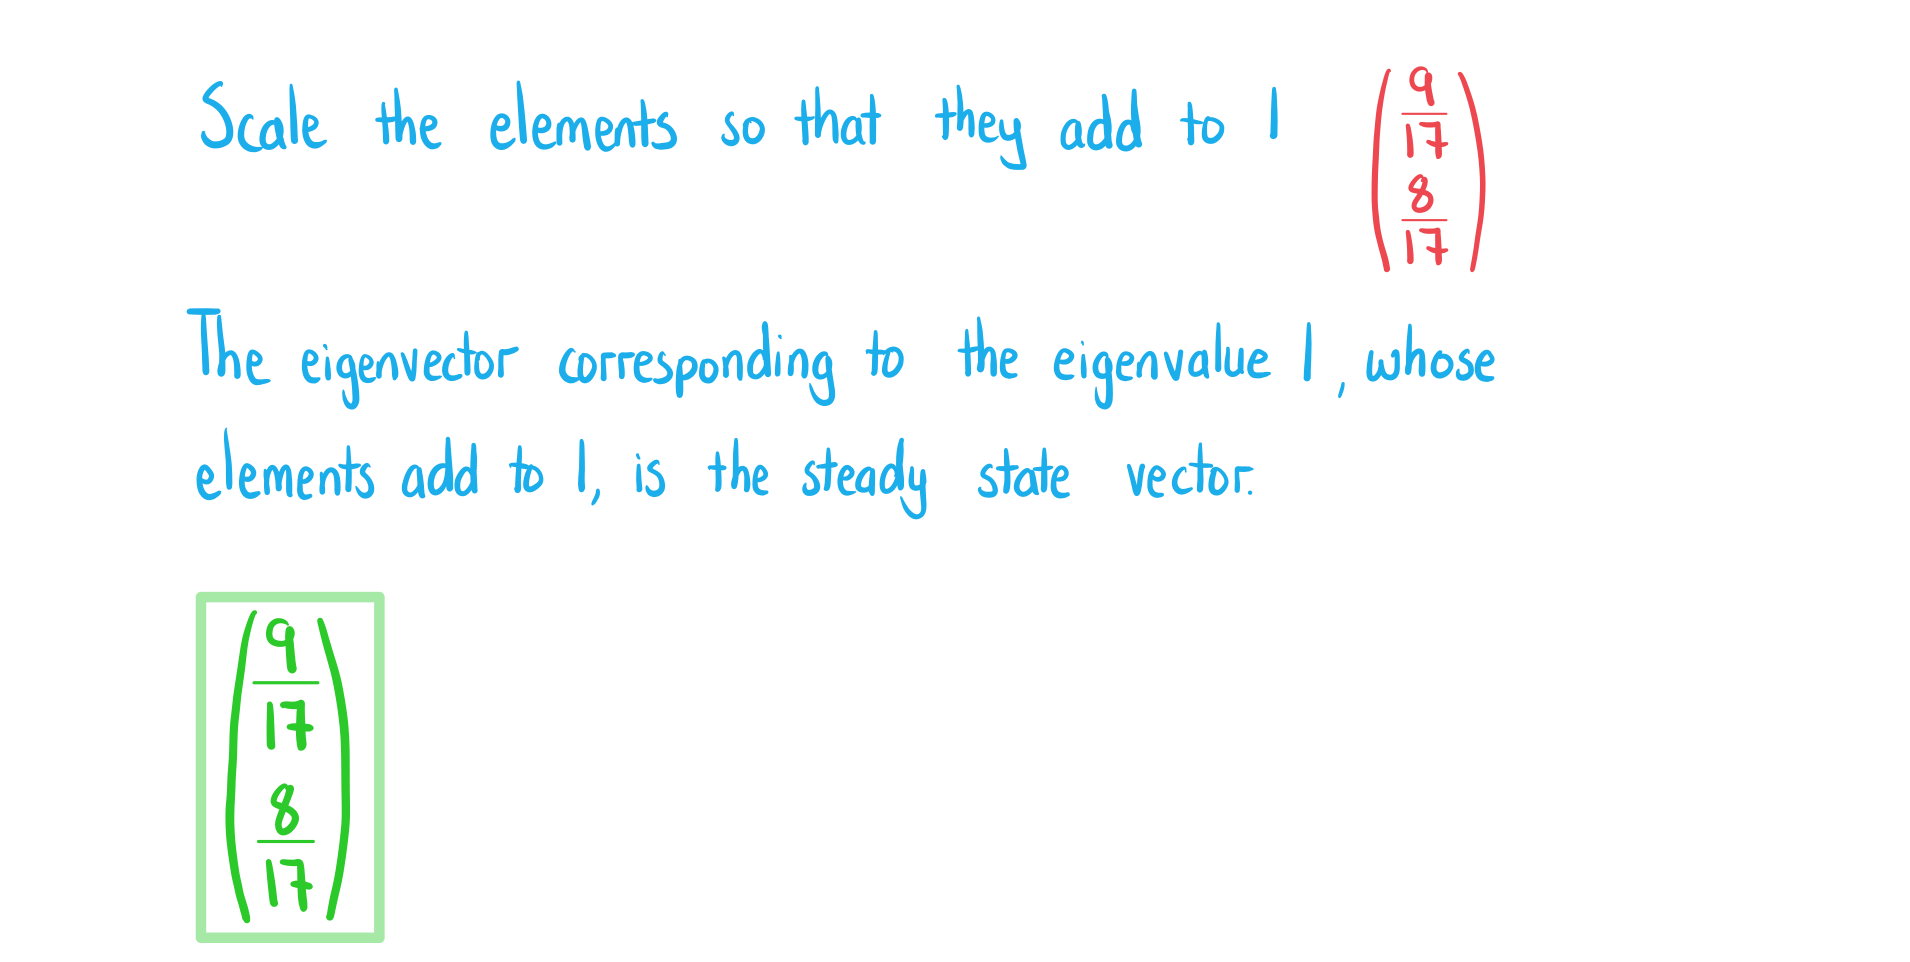 Scale the elements so that they add to 1
9
17
8
17
The eigenvector corresponding to the eigenvalue 1, whose
elements add to 1, is the steady state vector.
9
17
8
17